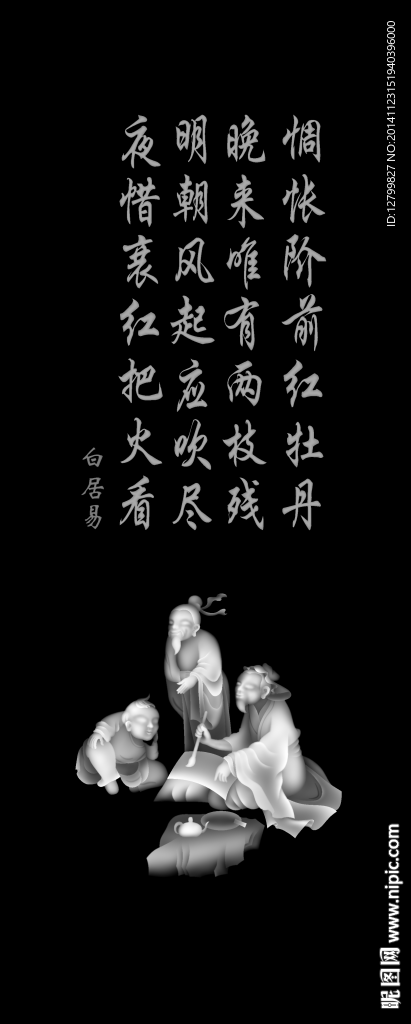 惆怅阶前红牡丹
晚来唯有两枝残
明朝风起应吹尽
夜惜衰红把火看
白居易
ID:12799827 NO:20141123151940396000
昵图网 www.nipic.com